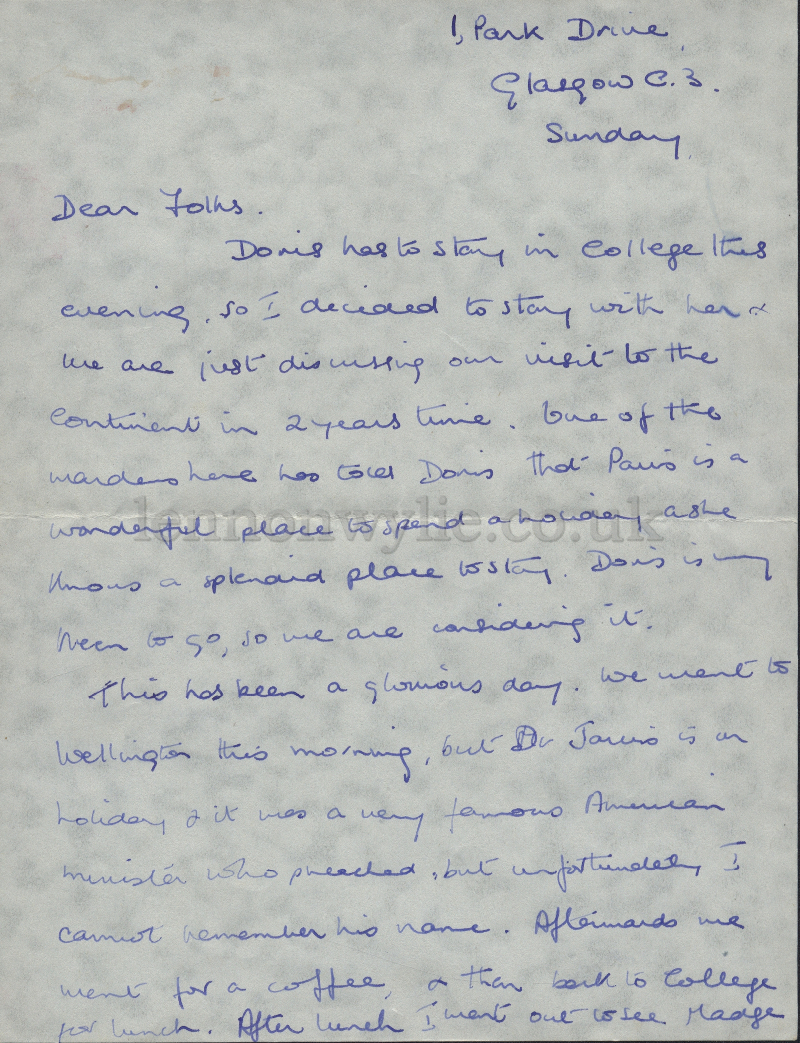 1, Park Drive,
Glasgow C.3.
Sunday,
Dear Folks.
Doris has to stay in College this
evening, so I decided to stay with her &
we are just discussing our visit to the
Continent in 2 years time. One of the
wardens here has told Doris that Paris is a
wonderful place to spend a holiday, & she
knows a splendid place to stay. Doris is very
keen to go, so we are considering it.
This has been a glorious day. We went to
Wellington this morning, but Dr Jarvis is on
holiday, & it was a very famous American
minister who preached, but unfortunately I
cannot remember his name. Afterwards we
went for a coffee, & then back to College
for lunch. After lunch I went out to see Madge
lennonwylie.co.uk